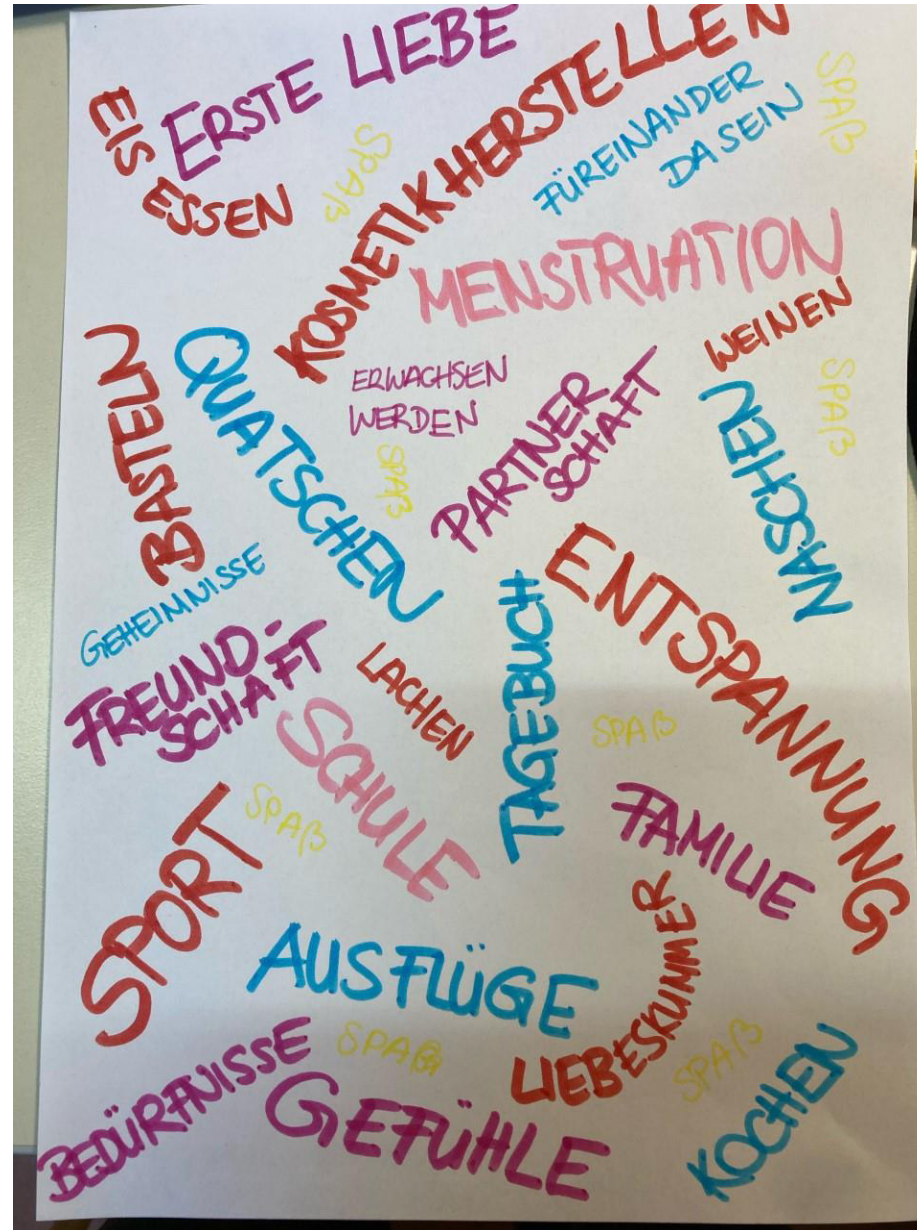 ERSTE LIEBE
EIS
ESSEN
SPAß
KOSMETIKHERSTELLEN
FÜREINANDER
DA SEIN
SPAß
MENSTRUATION
WEINEN
SPAß
BASTELN
QUATSCHEN
ERWACHSEN
WERDEN
SPAß
PARTNER
SCHAFT
NASCHEN
ENTSPANNUNG
GEHEIMNISSE
FREUND-
SCHAFT
LACHEN
SCHULE
TAGEBUCH
SPAß
SPAß
SPORT
FAMILIE
AUSFLÜGE
LIEBESKUMMER
BEDÜRFNISSE
SPAß
GEFÜHLE
SPAß
KOCHEN